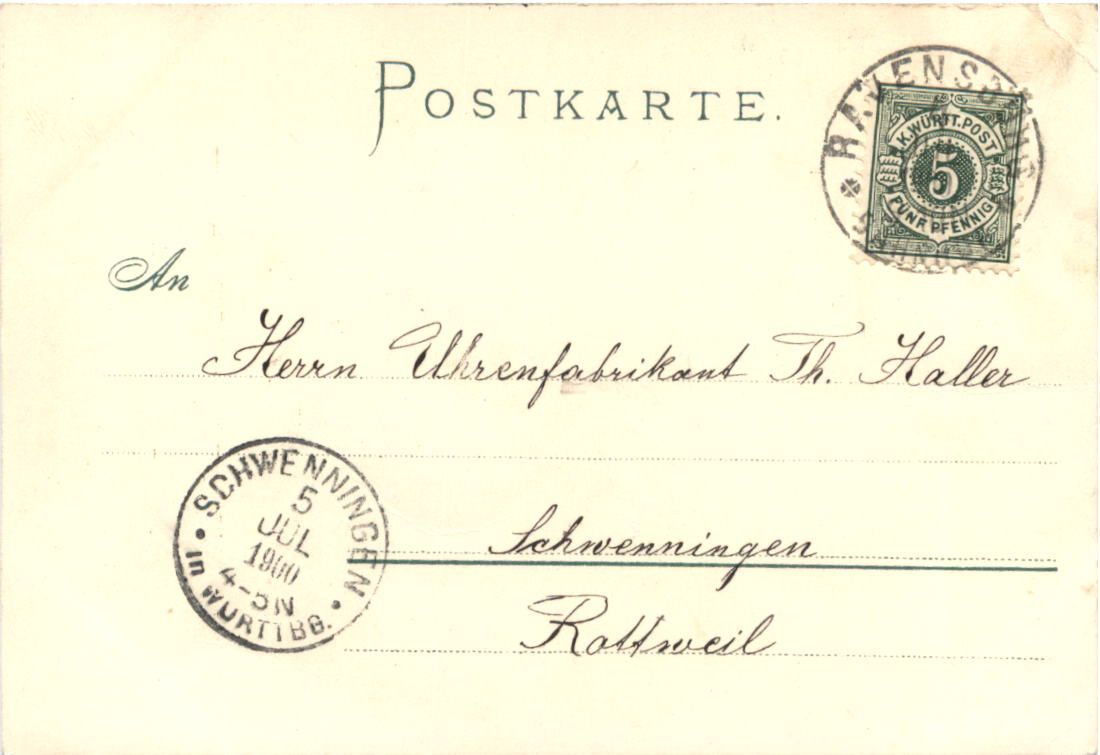 POSTKARTE.
RAVENSBURG
K. WÜRTT. POST
5
FÜNF PFENNIG
An
Herrn Uhrenfabrikant Th. Haller
SCHWENNINGEN
5
JUL
1900
4-5N
in WÜRTTBG.
Schwenningen
Rottweil